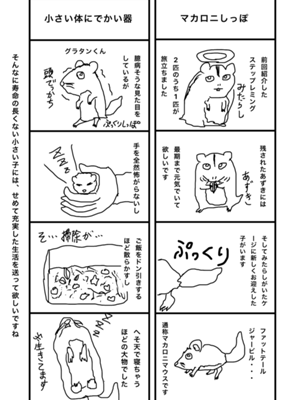 マカロニしっぽ
前回紹介した
ステップレミング
2匹のうち1匹が
旅立ちました
みたらし
残されたあずきには
最期まで元気でいて
欲しいです
あずき
そしてみたらしがいたケ
ージに新しくお迎えした
子がいます
ぷっくり
ファットテール
ジャービル・・・
通称マカロニマウスです
小さい体にでかい器
グラタンくん
臆病そうな見た目を
しているが
頭でっかち
ぷっくりしっぽ
手を全然怖がらないし
zzz
ご飯をドン引きする
ほど散らかすし
そ…掃除が…
へそ天で寝ちゃう
ほどの大物でした
zzz
※生きてます
そんなに寿命の長くない小さい子には、せめて充実した生活を送って欲しいですね